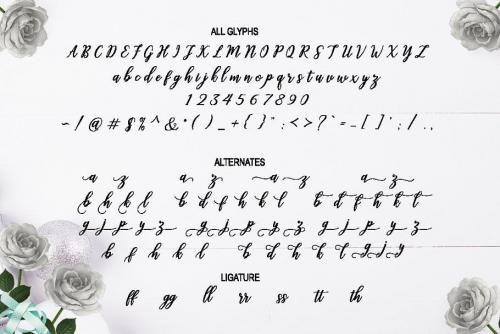 ALL GLYPHS
A B C D E F G H I J K L M N O P Q R S T U V W X Y Z
a b c d e f g h i j k l m n o p q r s t u v w x y z
1 2 3 4 5 6 7 8 9 0
~ / | @ # $ % ^ & * ( ) _ + { } " : < > ? ` = - [ ] ' ; / . ,
ALTERNATES
a z a z a z a z
b h k l b d f h k l b d f h k t
g j p y z g j p y z g j p y z
b f h k l b d h k l g j y
LIGATURE
ff gg ll rr ss tt th